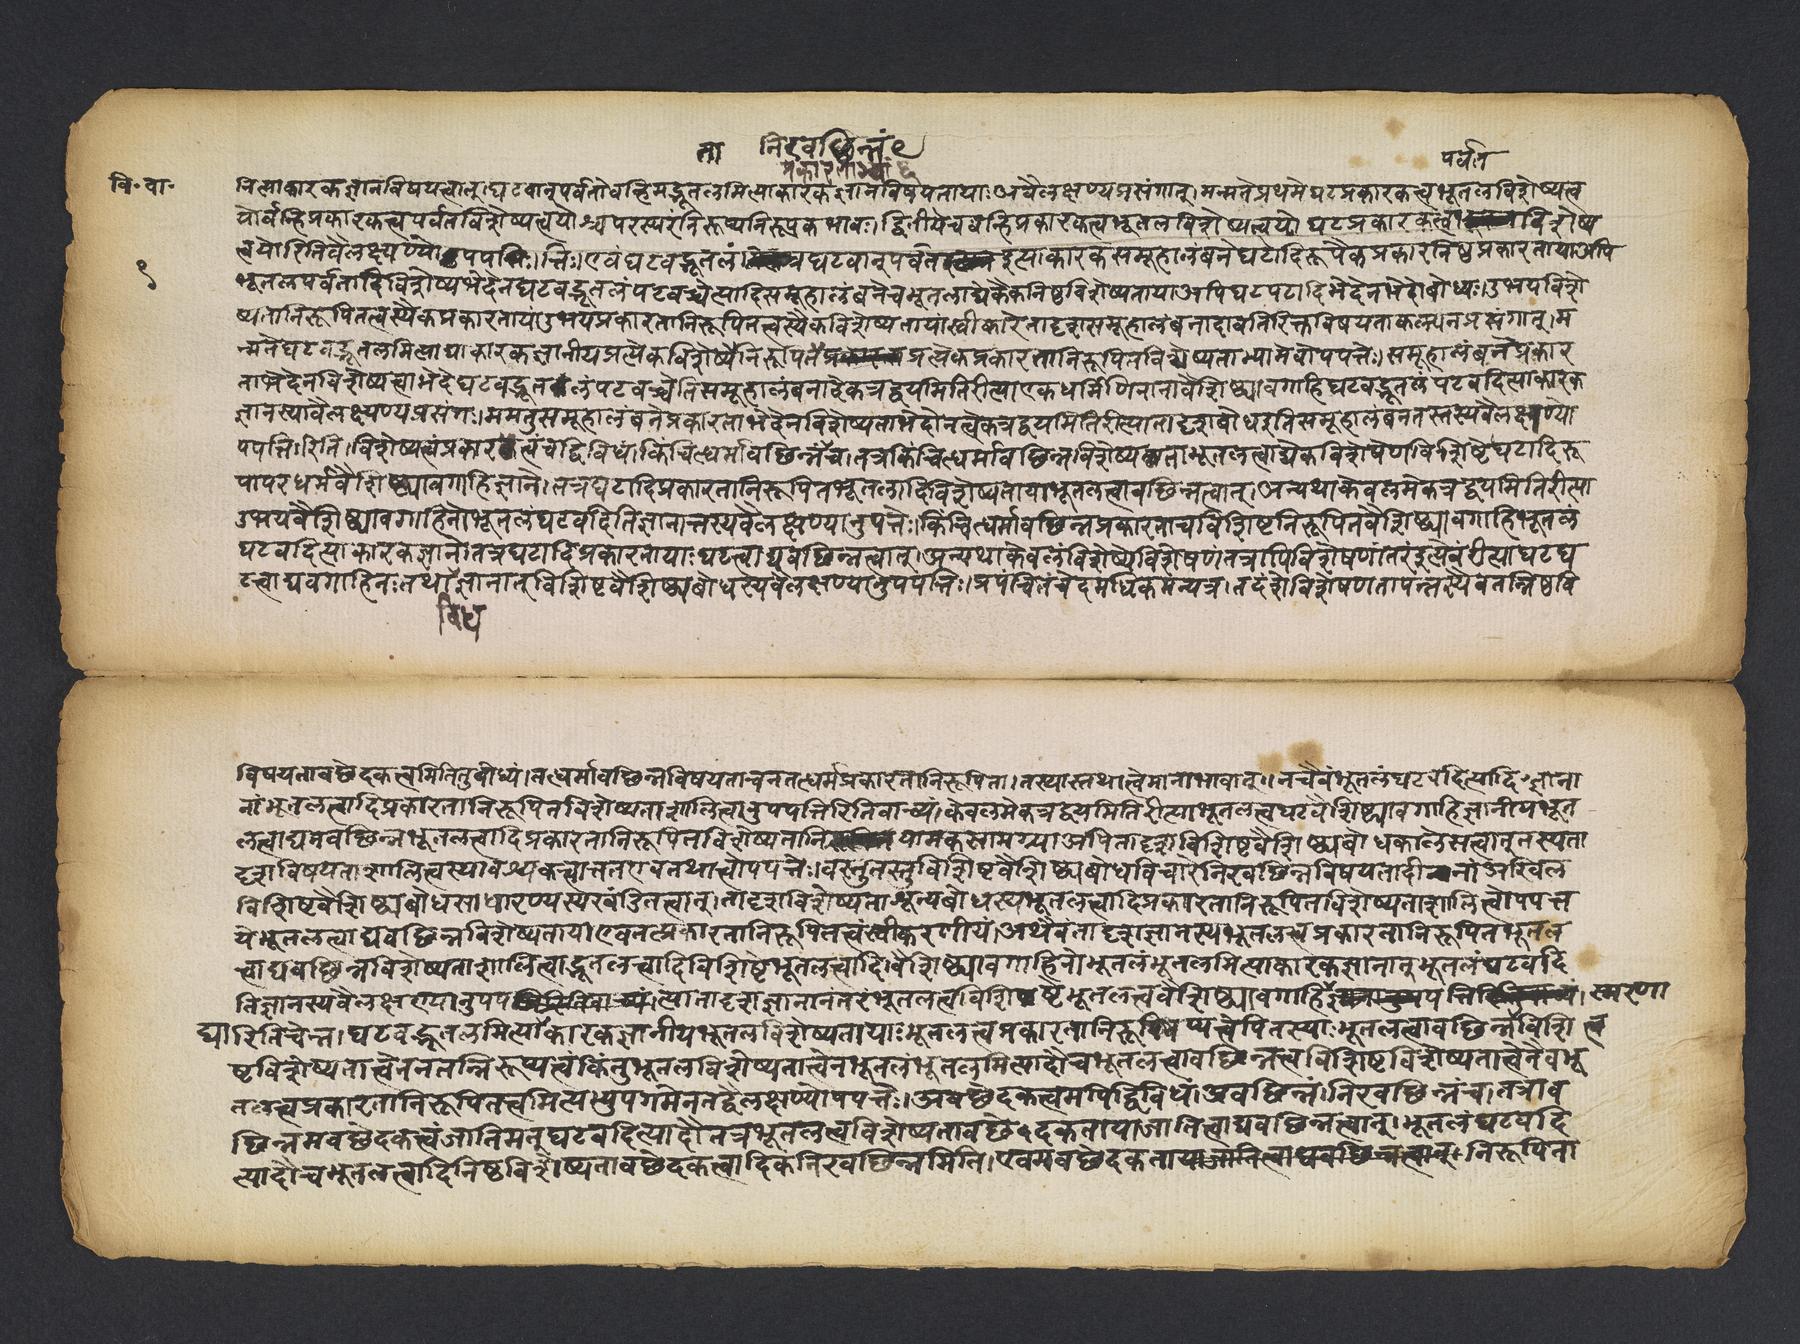 ता निरवछिन्नं९
प्रकारताभ्यां६
पर्वत
वि॰वा॰
१
मित्याकारकज्ञानविषयत्वात्।घटवान्पर्वतोवन्हिमद्भूतलमित्याकारकज्ञानविषयतायाःअवैलक्षण्यप्रसंगात्।मन्मतेप्रथमेघटप्रकारकत्वभूतलविशेष्यत्व
योर्वन्हिप्रकारकत्वपर्वतविशेष्यत्वयोश्चपरस्परंनिरूप्यनिरूपकभावः।द्वितीयेचवन्हिप्रकारकत्वभूतलविशेष्यत्वयोः घटप्रकारकत्व विशेष्य
त्वयोरितिवैलक्ष्यण्योपपत्तिः।एवंघटवद्भूतलं घटवान्पर्वत इत्याकारकसमूहालंबनेघटादिरूपैकप्रकारनिष्ठप्रकारतायाअपि
भूतलपर्वतादिविशेष्यभेदेनघटवद्भूतलंपटवच्चेत्यादिसमूहालंबनेचभूतलाद्येकैकनिष्ठविशेष्यतायाअपिघटपटादिभेदेनभेदोबोध्यः।उभयविशे
ष्यतानिरूपितत्वस्यैकप्रकारतायांउभयप्रकारतानिरूपितत्वस्यैकविशेष्यतायांस्वीकारेतादृशसमूहालंबनादावतिरिक्तविषयताकल्पनप्रसंगात्।म
न्मतेघटवद्भूतलमित्याद्याकारकज्ञानीयप्रत्येकविशेष्यैनिरूपित प्रत्येकप्रकारतानिरूपितविशेष्यताभ्यामेवोपपत्तेः।समूहालंबनेप्रकार
ताभेदेनविशेष्यत्वाभेदेघटवद्भूतलंपटवच्चेतिसमूहालंबनादेकत्रद्वयमितिरीत्याएकधर्मिणिनानावैशिष्ट्यावगाहिघटवद्भूतलंपटवदित्याकारक
ज्ञानस्यावैलक्ष्यण्यप्रसंगः।ममतुसमूहालंबनेप्रकारताभेदेनविशेष्यताभेदोनत्वेकत्रद्वयमितिरीत्यातादृशबोधइतिसमूहालंबनतस्तस्यवैलक्षण्यो
पपत्तिरिति।विशेष्यत्वंप्रकारत्वंचद्विविधं।किंचिद्धर्मावछिन्नंच।तत्रकिंचिद्धर्मावछिन्नविशेष्यताभूतलत्वाद्येकविशेषणविशिष्टेघटादिरू
पापरधर्मवैशिष्ट्यावगाहिज्ञाने।तत्रघटादिप्रकारतानिरूपितभूतलादिविशेष्यतायाभूतलत्वावछिन्नत्वात्।अन्यथाकेवलमेकत्रद्वयमितिरीत्या
उभयवैशिष्ट्यावगाहिनोभूतलंघटवदितिज्ञानात्तस्यवैलक्षण्यानुपपत्तेः।किंचिद्धर्मावछिन्नप्रकारताचविशिष्टनिरूपितवैशिष्ट्यावगाहिभूतलं
घटवदित्याकारकज्ञाने।तत्रघटादिप्रकारतायाःघटत्वाद्यवछिन्नत्वात्।अन्यथाकेवलंविशेष्येविशेषणंतत्रापिविशेषणांतरंइत्येवंरीत्याघटघ
टत्वाद्यवगाहिनःतथाज्ञानात्विशिष्टवैशिष्ट्यबोधस्यवैलक्षण्यानुपपत्तिः।प्रपंचितंचेदमधिकमन्यत्र।तदंशेविशेषणतापन्नस्यैवतन्निष्ठवि
विध
विषयतावछेदकत्वमितितुबोध्यं।तद्धर्मावछिन्नविषयताचनतद्धर्मप्रकारतानिरूपिता।तस्यास्तथात्वेमानाभावात्।नचैवंभूतलंघटवदित्यादिज्ञाना
नांभूतलत्वादिप्रकारतानिरूपितविशेष्यताशालित्वानुपपत्तिरितिवाच्यं।केवलमेकत्रद्वयमितिरीत्याभूतलत्वघटवैशिष्ट्यावगाहिज्ञानीयभूत
लत्वाद्यनवच्छिन्नभूतलत्वादिप्रकारतानिरूपितविशेष्यतानि यामकसामग्र्याअपितादृशविशिष्टवैशिष्ट्यबोधकालेसत्वात्तस्यता
दृशविषयताशालित्वस्यावश्यकत्वात्ततएवतथात्वोपपत्तेः।वस्तुतस्तुविशिष्टवैशिष्ट्यबोधविचारेनिरवछिन्नविषयतादीनांअखिल
विशिष्टवैशिष्ट्यबोधसाधारण्यस्यखंडितत्वात्।तादृशविशेष्यताशून्यबोधस्यभूतलत्वादिप्रकारतानिरूपितविशेष्यताशालित्वोपपत्त
येभूतलत्वाद्यवछिन्नविशेष्यताया।एवतत्प्रकारतानिरूपितत्वंस्वीकरणीयं।अथैवंतादृशज्ञानस्यभूतलत्वप्रकारतानिरूपितभूतल
त्वाद्यवछिन्नविशेष्यताशालित्वाद्भूतलत्वादिविशिष्टेभूतलत्वादिवैशिष्ट्यावगाहिनोभूतलंभूतलमित्याकारकज्ञानात्भूतलंघटवदि
तिज्ञानस्यवैलक्षण्यानुपप त्यातादृशज्ञानानंतरंभूतलत्वविशिष्टेभूतलत्ववैशिष्ट्यावगाहि पत्ति स्मरणा
द्यारितिचेन्न।घटवद्भूतलमित्याकारकज्ञानीयभूतलविशेष्यतायाःभूतलत्वप्रकारतानिरूप्यत्वेपितस्याःभूतलत्वावछिन्नविशि त्व
ष्टविशेष्यतात्वेननतन्निरूप्यत्वंकिंतुभूतलविशेष्यतात्वेनभूतलंभूतलमित्यादौचभूतलत्वावछिन्नत्वविशिष्टविशेष्यतात्वेनैवभू
तलत्वप्रकारतानिरूपितत्वमित्यभ्युपगमेनतद्वैलक्षण्योपपत्तेः।अवछेदकत्वमपिद्विविधं।अवछिन्नं।निरवछिन्नंच।तत्राव
छिन्नमवछेदकत्वंजातिमत्घटवदित्यादौतत्रभूतलत्वविशेष्यतावछेदकतायाजातित्वाद्यवछिन्नत्वात्।भूतलंघटवदि
त्यादौचभूतलत्वादिनिष्ठविशेष्यतावछेदकत्वादिकंनिरवछिन्नमिति।एवमवछेदकतायाजातित्वाद्यवछिन्नत्वात्।निरूपिता